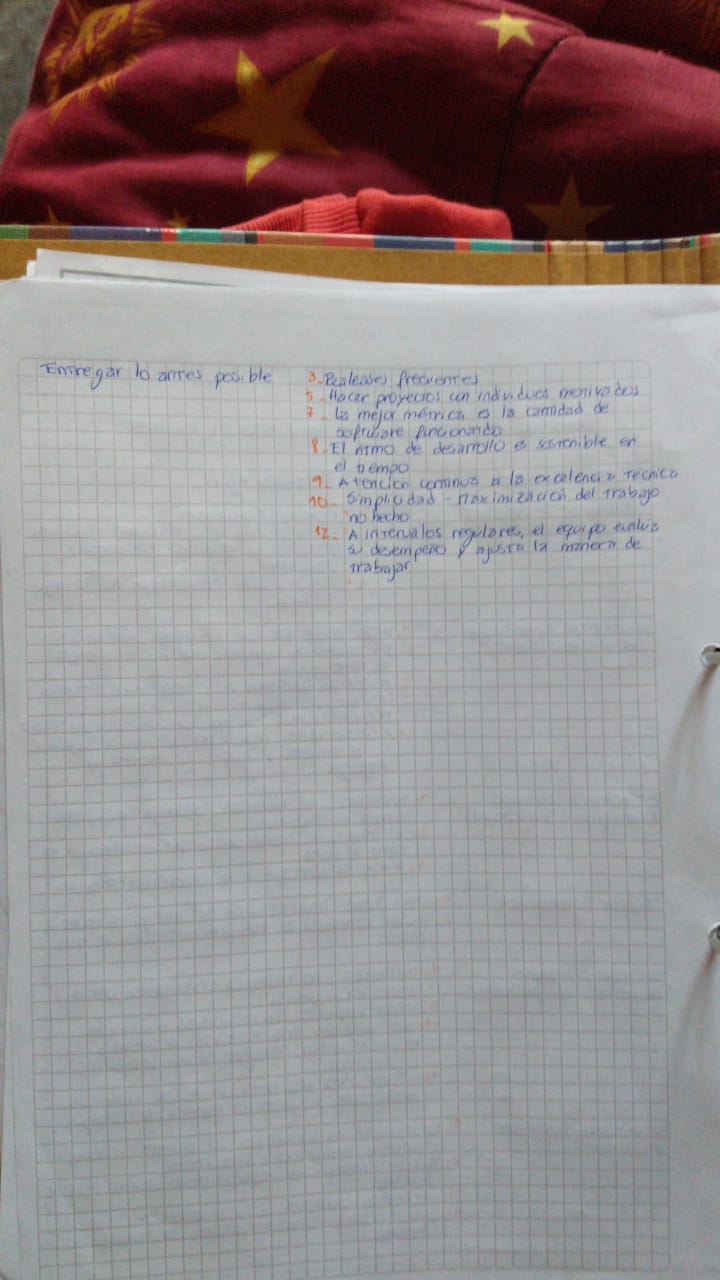 Entregar lo antes posible
3-Realeases frecuentes
5-Hacer proyectos con individuos motivados
7- La mejor métrica es la cantidad de
software funcionando
8-El ritmo de desarrollo es sostenible en
el tiempo
9- Atención continua a la excelencia técnica
10- Simplicidad - maximización del trabajo
no hecho
12- A intervalos regulares, el equipo evalúa
su desempeño y ajusta la manera de
trabajar